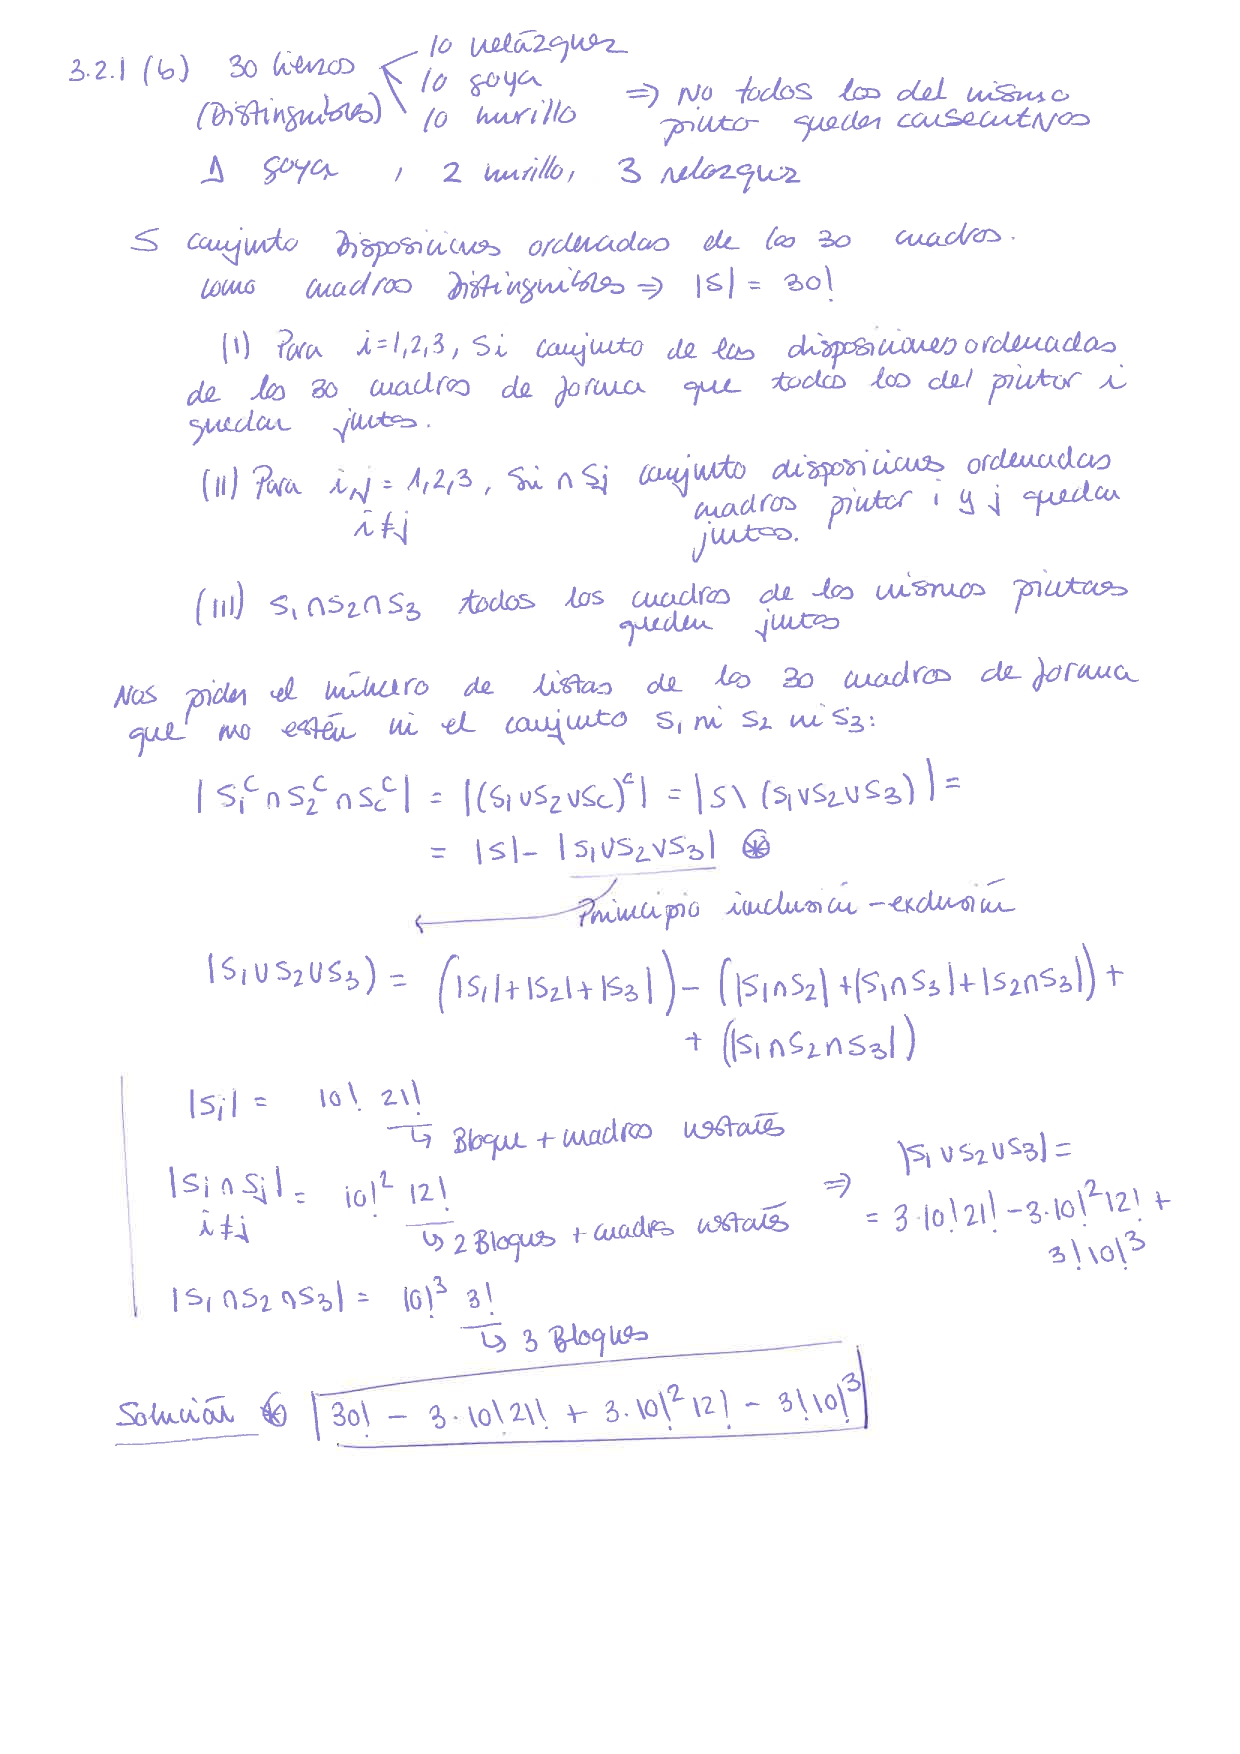 3.2.1 (b) 30 lienzos
10 Velázquez
10 goya
10 murillo
(Distinguibles)
⇒ No todos los del mismo
pintor queden consecutivos
1 goya, 2 murillo, 3 velazquez
S conjunto Disposiciones ordenadas de los 30 cuadros.
como cuadros Distinguibles ⇒ |S| = 30!
(I) Para i=1,2,3, Si conjunto de las disposiciones ordenadas
de los 30 cuadros de forma que todos los del pintor i
quedan juntos.
(II) Para i,j = 1,2,3, Si ∩ Sj conjunto disposiciones ordenadas
i≠j
cuadros pintor i y j quedan
juntos.
(III) S1∩S2∩S3 todos los cuadros de los mismos pintores
queden juntos
Nos piden el número de listas de los 30 cuadros de forma
que no estén ni el conjunto S1 ni S2 ni S3:
|S1^C ∩ S2^C ∩ Sc^C| = |(S1∪S2∪Sc)^C| = |S\(S1∪S2∪S3)| =
= |S| - |S1∪S2∪S3| ⊛
Principio inclusión-exclusión
|S1∪S2∪S3) = (|S1|+|S2|+|S3|) - (|S1∩S2|+|S1∩S3|+|S2∩S3|) +
+ (|S1∩S2∩S3|)
|Si| = 10! 21!
↳ Bloque + cuadros restantes
|Si∩Sj| = 10!² 12!
i≠j
↳ 2 Bloques + cuadros restantes
⇒ |S1∪S2∪S3| =
= 3·10!21! - 3·10!²12! +
3!10!³
|S1∩S2∩S3| = 10!³ 3!
↳ 3 Bloques
Solución ⊛ 30! - 3·10!21! + 3·10!²12! - 3!10!³